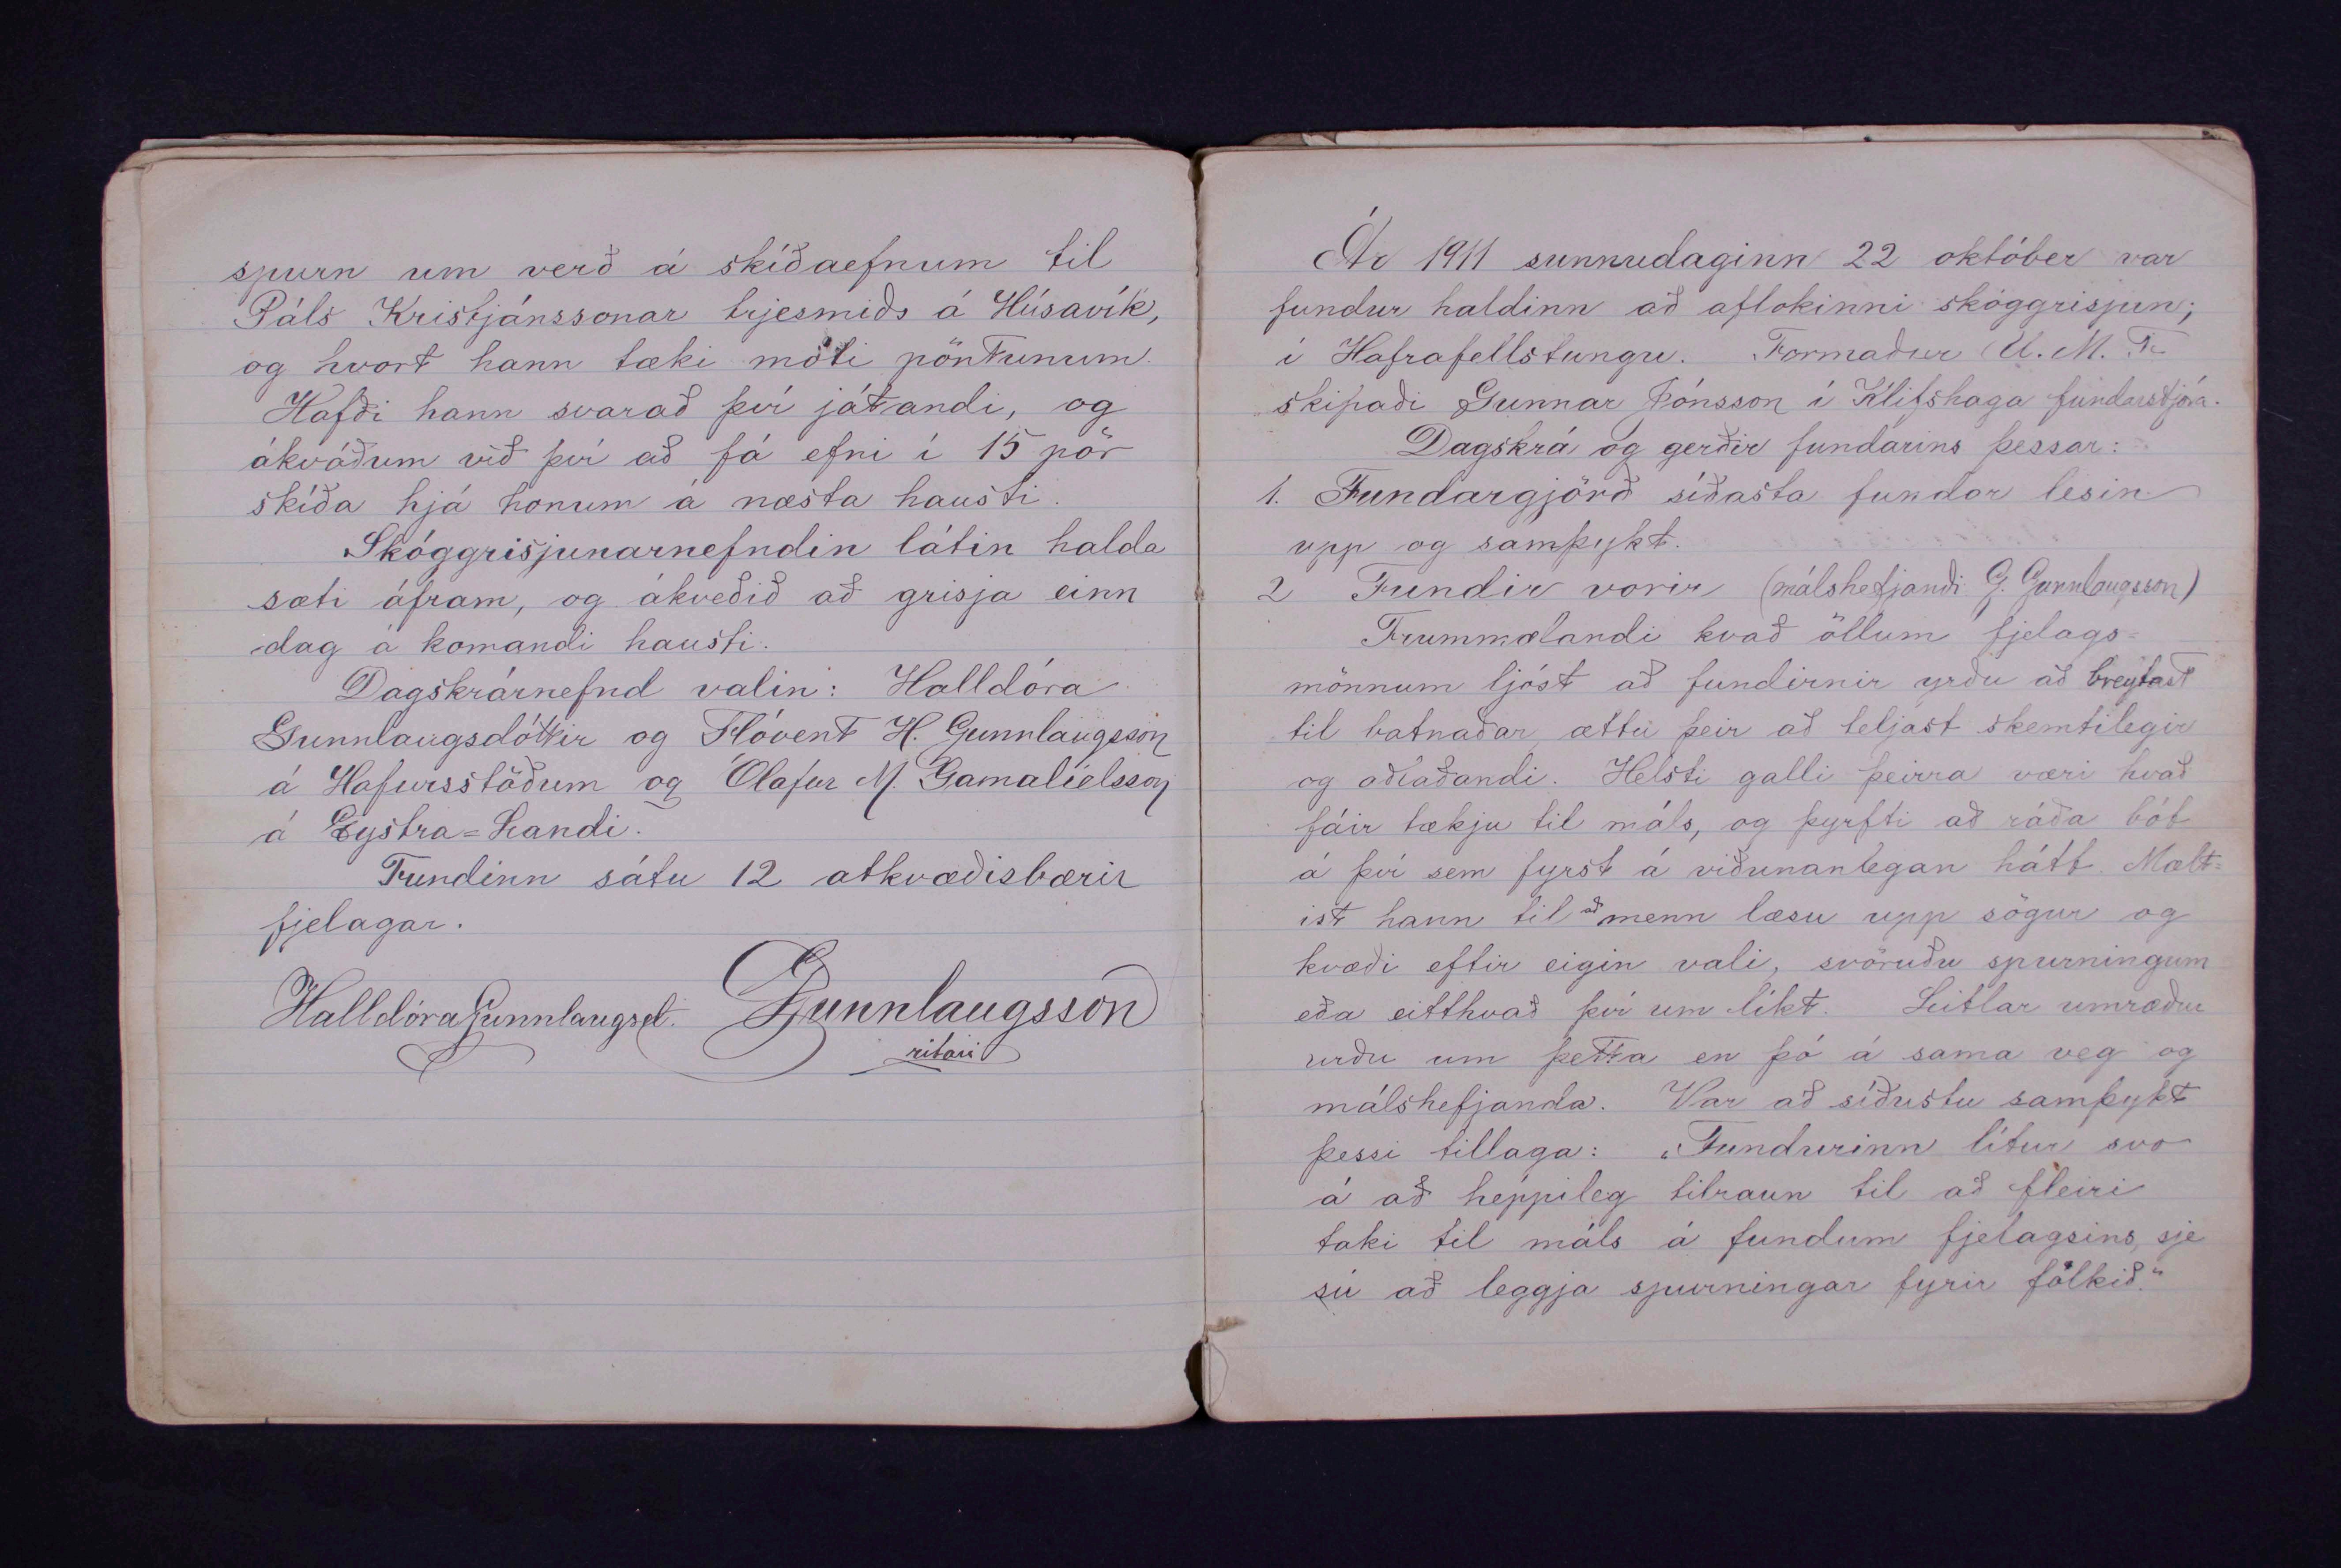 spurn um verð á skíðaefnum til
Páls Kristjánssonar trjesmiðs á Húsavík,
og hvort hann tæki móti pöntunum.
Hafði hann svarað því játandi, og
ákváðum við því að fá efni í 15 pör
skíða hjá honum á næsta hausti.
Skóggrisjunarnefndin látin halda
sæti áfram, og ákveðið að grisja einn
dag á komandi hausti.
Dagskrárnefnd valin: Halldóra
Gunnlaugsdóttir og Flóvent H. Gunnlaugsson
á Hafursstöðum og Ólafur M. Gamalíelsson
á Eystra=Landi.
Fundinn sátu 12 atkvæðisbærir
fjelagar.
Halldóra Gunnlaugsd. Gunnlaugsson
ritari
Ár 1911 sunnudaginn 22 október var
fundur haldinn að aflokinni skóggrisjun;
í Hafrafellstungu. Formaður U. M. F.
skipaði Gunnar Jónsson í Klifshaga fundarstjóra.
Dagskrá og gerðir fundarins þessar:
1. Fundargjörð síðasta fundar lesin
upp og samþykt.
2 Fundir vorir (málshefjandi G. Gunnlaugsson)
Frummælandi kvað öllum fjelags=
mönnum ljóst að fundirnir yrðu að breytast
til batnaðar, ættu þeir að teljast skemtilegir
og aðlaðandi. Helsti galli þeirra væri hvað
fáir tækju til máls, og þyrfti að ráða bót
á því sem fyrst á viðunanlegan hátt. Mælt=
ist hann til að menn læsu upp sögur og
kvæði eftir eigin vali, svöruðu spurningum
eða eitthvað því um líkt. Litlar umræður
urðu um þetta en þó á sama veg og
málshefjanda. Var að síðustu samþykt
þessi tillaga: „Fundurinn lítur svo
á að heppileg tilraun til að fleiri
taki til máls á fundum fjelagsins, sje
sú að leggja spurningar fyrir fólkið."